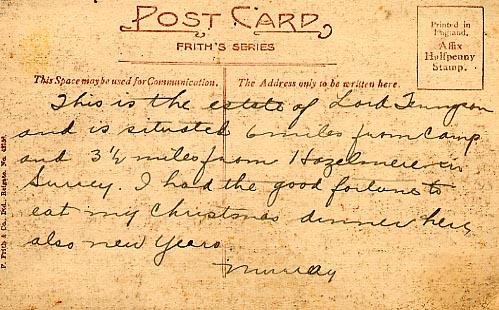 POST CARD
FRITH'S SERIES
Printed in
England.
Affix
Halfpenny
Stamp.
This Space may be used for Communication.
The Address only to be written here.
This is the estate of Lord Tennyson
and is situated 6 miles from Camp
and 3½ miles from Hazelmere in
Surrey. I had the good fortune to
eat my Christmas dinner here
also new Years
Murray
F. Frith & Co., Ltd., Reigate. No.